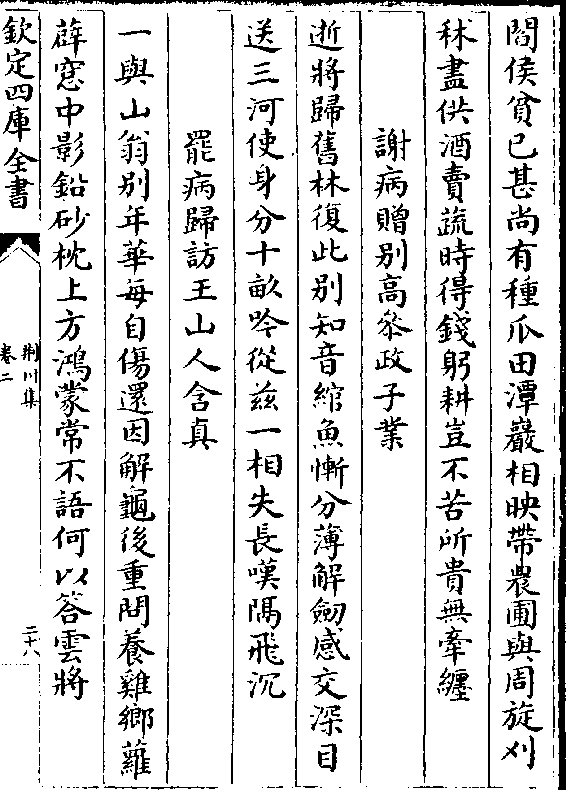 閻侯貧已甚尚有種爪田潭巖相映帶農圃與周旋刈
秫盡供酒賣蔬時得錢躬耕豈不苦所貴無牽纏
謝病贈別高叅政子業
逝將歸舊林復此別知音綰魚慚分薄解劒感交深目
送三河使身分十畝吟從兹一相失長嘆隅飛沉
罷病歸訪王山人含真
一與山翁別年華每自傷還因解龜後重問養雞鄉蘿
薜窓中影鉛砂枕上方鴻蒙常不語何以答雲將
欽定四庫全書
荆川集
卷二
二十八